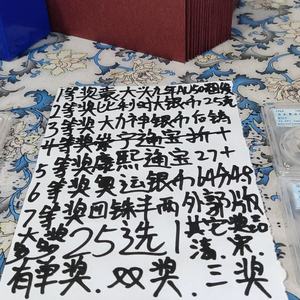 1等奖袁大头九年AU50圆侵
2等奖比利时大银币25克
3等奖大力神银币后铸
4等奖咸宁通宝折十
5等奖康熙通宝27+
6等奖奥运银币64分48
7等奖回铢半两外郭版
大奖 25选1 其它奖品
清 京
有单奖.双奖.三奖